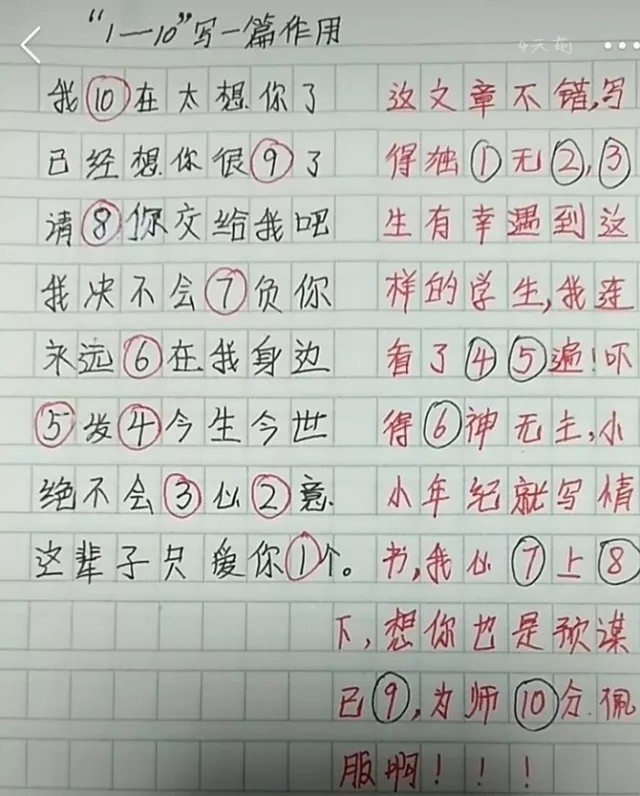 “1—10”写一篇作用
4天前
我⑩在太想你了
已经想你很⑨了
请⑧你交给我吧
我决不会⑦负你
永远⑥在我身边
⑤发④今生今世
绝不会③心②意
这辈子只爱你①个。
这文章不错,写
得独①无②,③
生有幸遇到这
样的学生,我连
看了④⑤遍!吓
得⑥神无主,小
小年纪就写情
书,我心⑦上⑧
下,想你也是预谋
已⑨,为师⑩分佩
服啊!!!